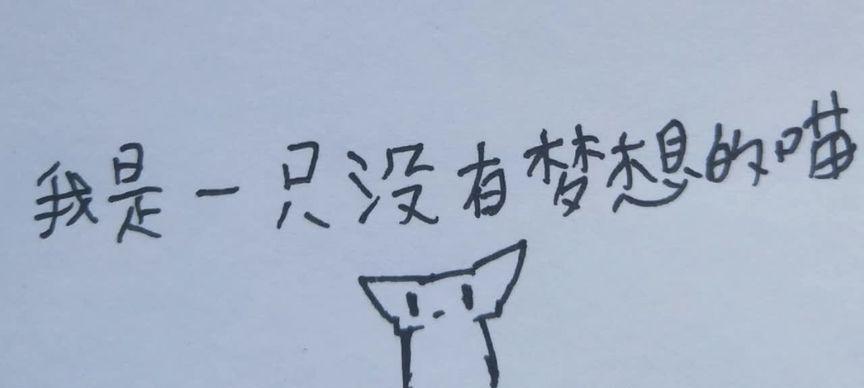 我是一只没有梦想的喵